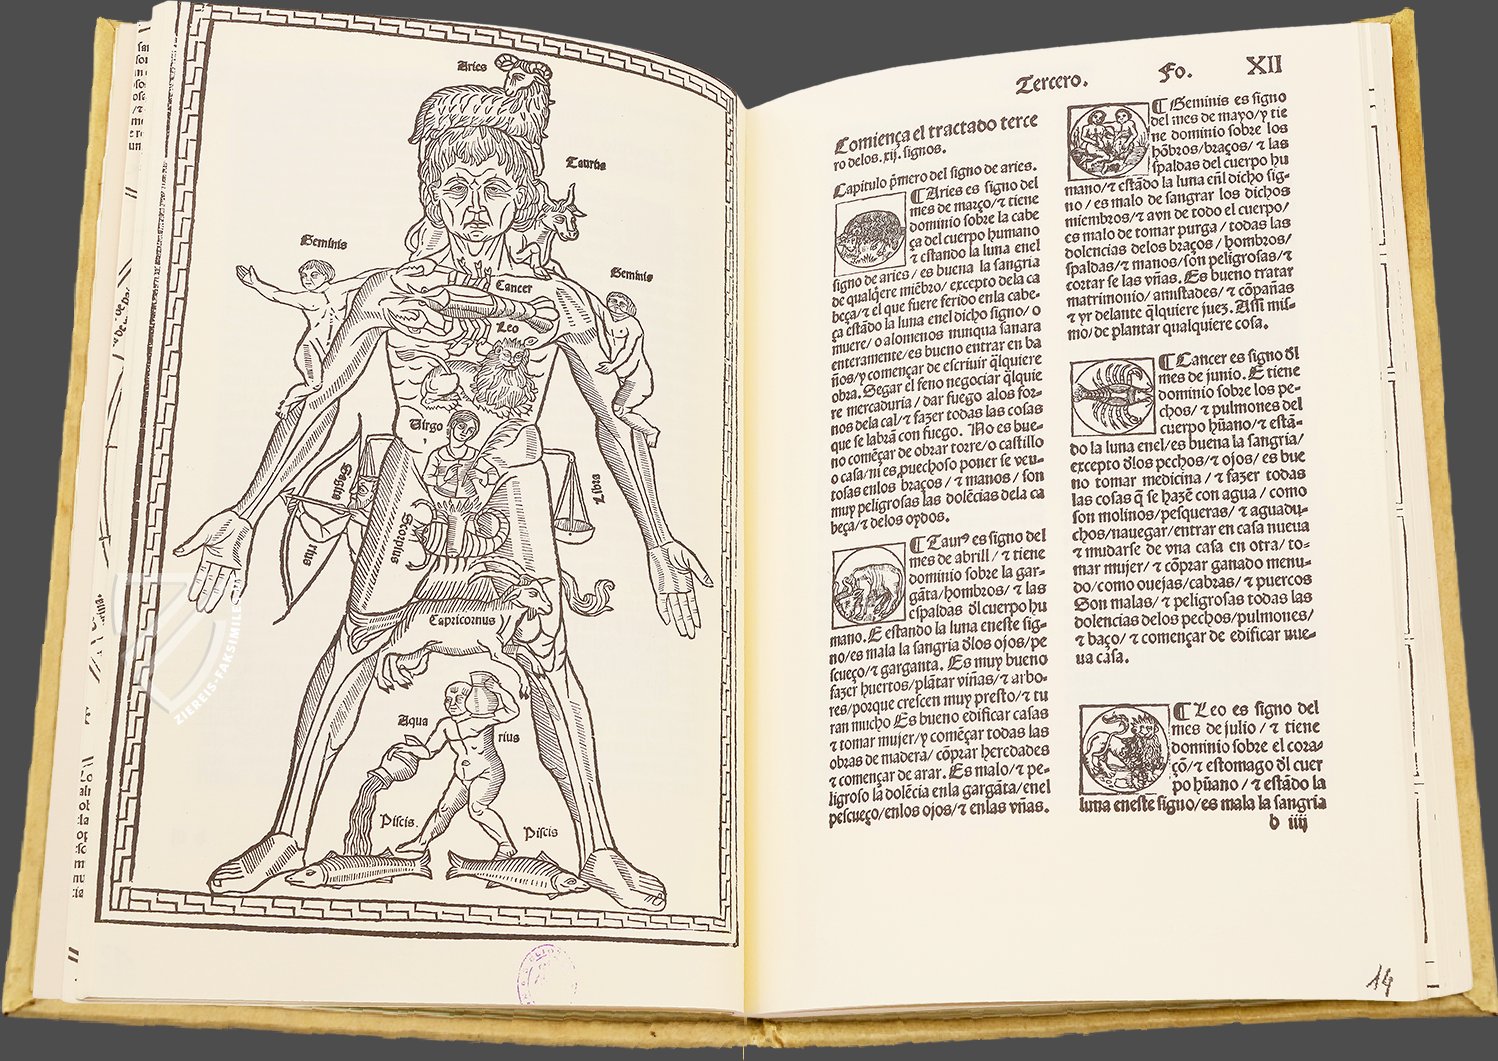 Aries
Taurus
Geminis
Geminis
Cancer
Leo
Virgo
Libra
Sagita
rius
Scorpius
Capricornus
Aqua
rius
Piscis.
Piscis
ZIEREIS-FAKSIMILE.COM
Tercero. Fo. XII
Comiença el tractado terce
ro delos .xij. signos.
Capitulo p̃mero del signo de aries.
¶ Aries es signo del
mes de março/⁊ tiene
dominio sobre la cabe
ça del cuerpo humano
⁊ estando la luna enel
signo de aries/es buena la sangria
de qualq̃ere miẽbro/excepto dela ca
beça/⁊ el que fuere ferido enla cabe-
ça estãdo la luna enel dicho signo/o
muere/o alomenos nunqua sanara
enteramente/es bueno entrar en ba
ños/y començar de escriuir q̃lquiere
obra. Segar el feno negociar q̃lquie
re mercaduria/dar fuego alos for-
nos dela cal/⁊ fazer todas las cosas
que se labrã con fuego. No es bue-
no comẽçar de obrar torre/o castillo
o casa/ni es ꝓuechoso poner se veu-
tosas enlos braços/⁊ manos/son
muy peligrosas las dolẽcias dela ca
beça/⁊ delos oydos.
¶ Taurꝰ es signo del
mes de abrill/⁊ tiene
dominio sobre la gar-
gãta/hombros/⁊ las
espaldas ďl cuerpo hu
mano. E estando la luna eneste sig-
no/es mala la sangria ďlos ojos/pe
scueço/⁊ garganta. Es muy bueno
fazer huertos/plãtar viñas/⁊ arbo-
res/porque crescen muy presto/⁊ tu
ran mucho Es bueno edificar casas
⁊ tomar mujer/y comẽçar todas las
obras de madera/cõprar heredades
⁊ començar de arar. Es malo/⁊ pe-
ligroso la dolẽcia enla gargãta/enel
pescueço/enlos ojos/⁊ enlas vñas.
¶ Geminis es signo
del mes de mayo/y tie
ne dominio sobre los
hõbros/braços/⁊ las
spaldas del cuerpo hu
mano/⁊ estãdo la luna eñl dicho sig-
no/es malo de sangrar los dichos
miembros/⁊ avn de todo el cuerpo/
es malo de tomar purga/todas las
dolencias delos braços/hombros/
spaldas/⁊ manos/son peligrosas/⁊
cortar se las vñas. Es bueno tratar
matrimonio/amistades/⁊ cõpañas
⁊ yr delante q̃lquiere juez. Assi mis-
mo/de plantar qualquiere cosa.
¶ Cancer es signo ďl
mes de junio. E tiene
dominio sobre los pe-
chos/⁊ pulmones del
cuerpo hũano/⁊ estã-
do la luna enel/es buena la sangria/
excepto ďlos pechos/⁊ ojos/es bue
no tomar medicina/⁊ fazer todas
las cosas q̃ se hazẽ con agua/como
son molinos/pesqueras/⁊ aguadu-
chos/nauegar/entrar en casa nueua
⁊ mudarse de vna casa en otra/to-
mar mujer/⁊ cõprar ganado menu-
do/como ouejas/cabras/⁊ puercos
Son malas/⁊ peligrosas todas las
dolencias delos pechos/pulmones/
⁊ baço/⁊ començar de edificar nue-
ua casa.
¶ Leo es signo del
mes de julio/⁊ tiene
dominio sobre el cora-
çõ/⁊ estomago ďl cuer
po hũano/⁊ estãdo la
luna eneste signo/es mala la sangria
b iiij
14